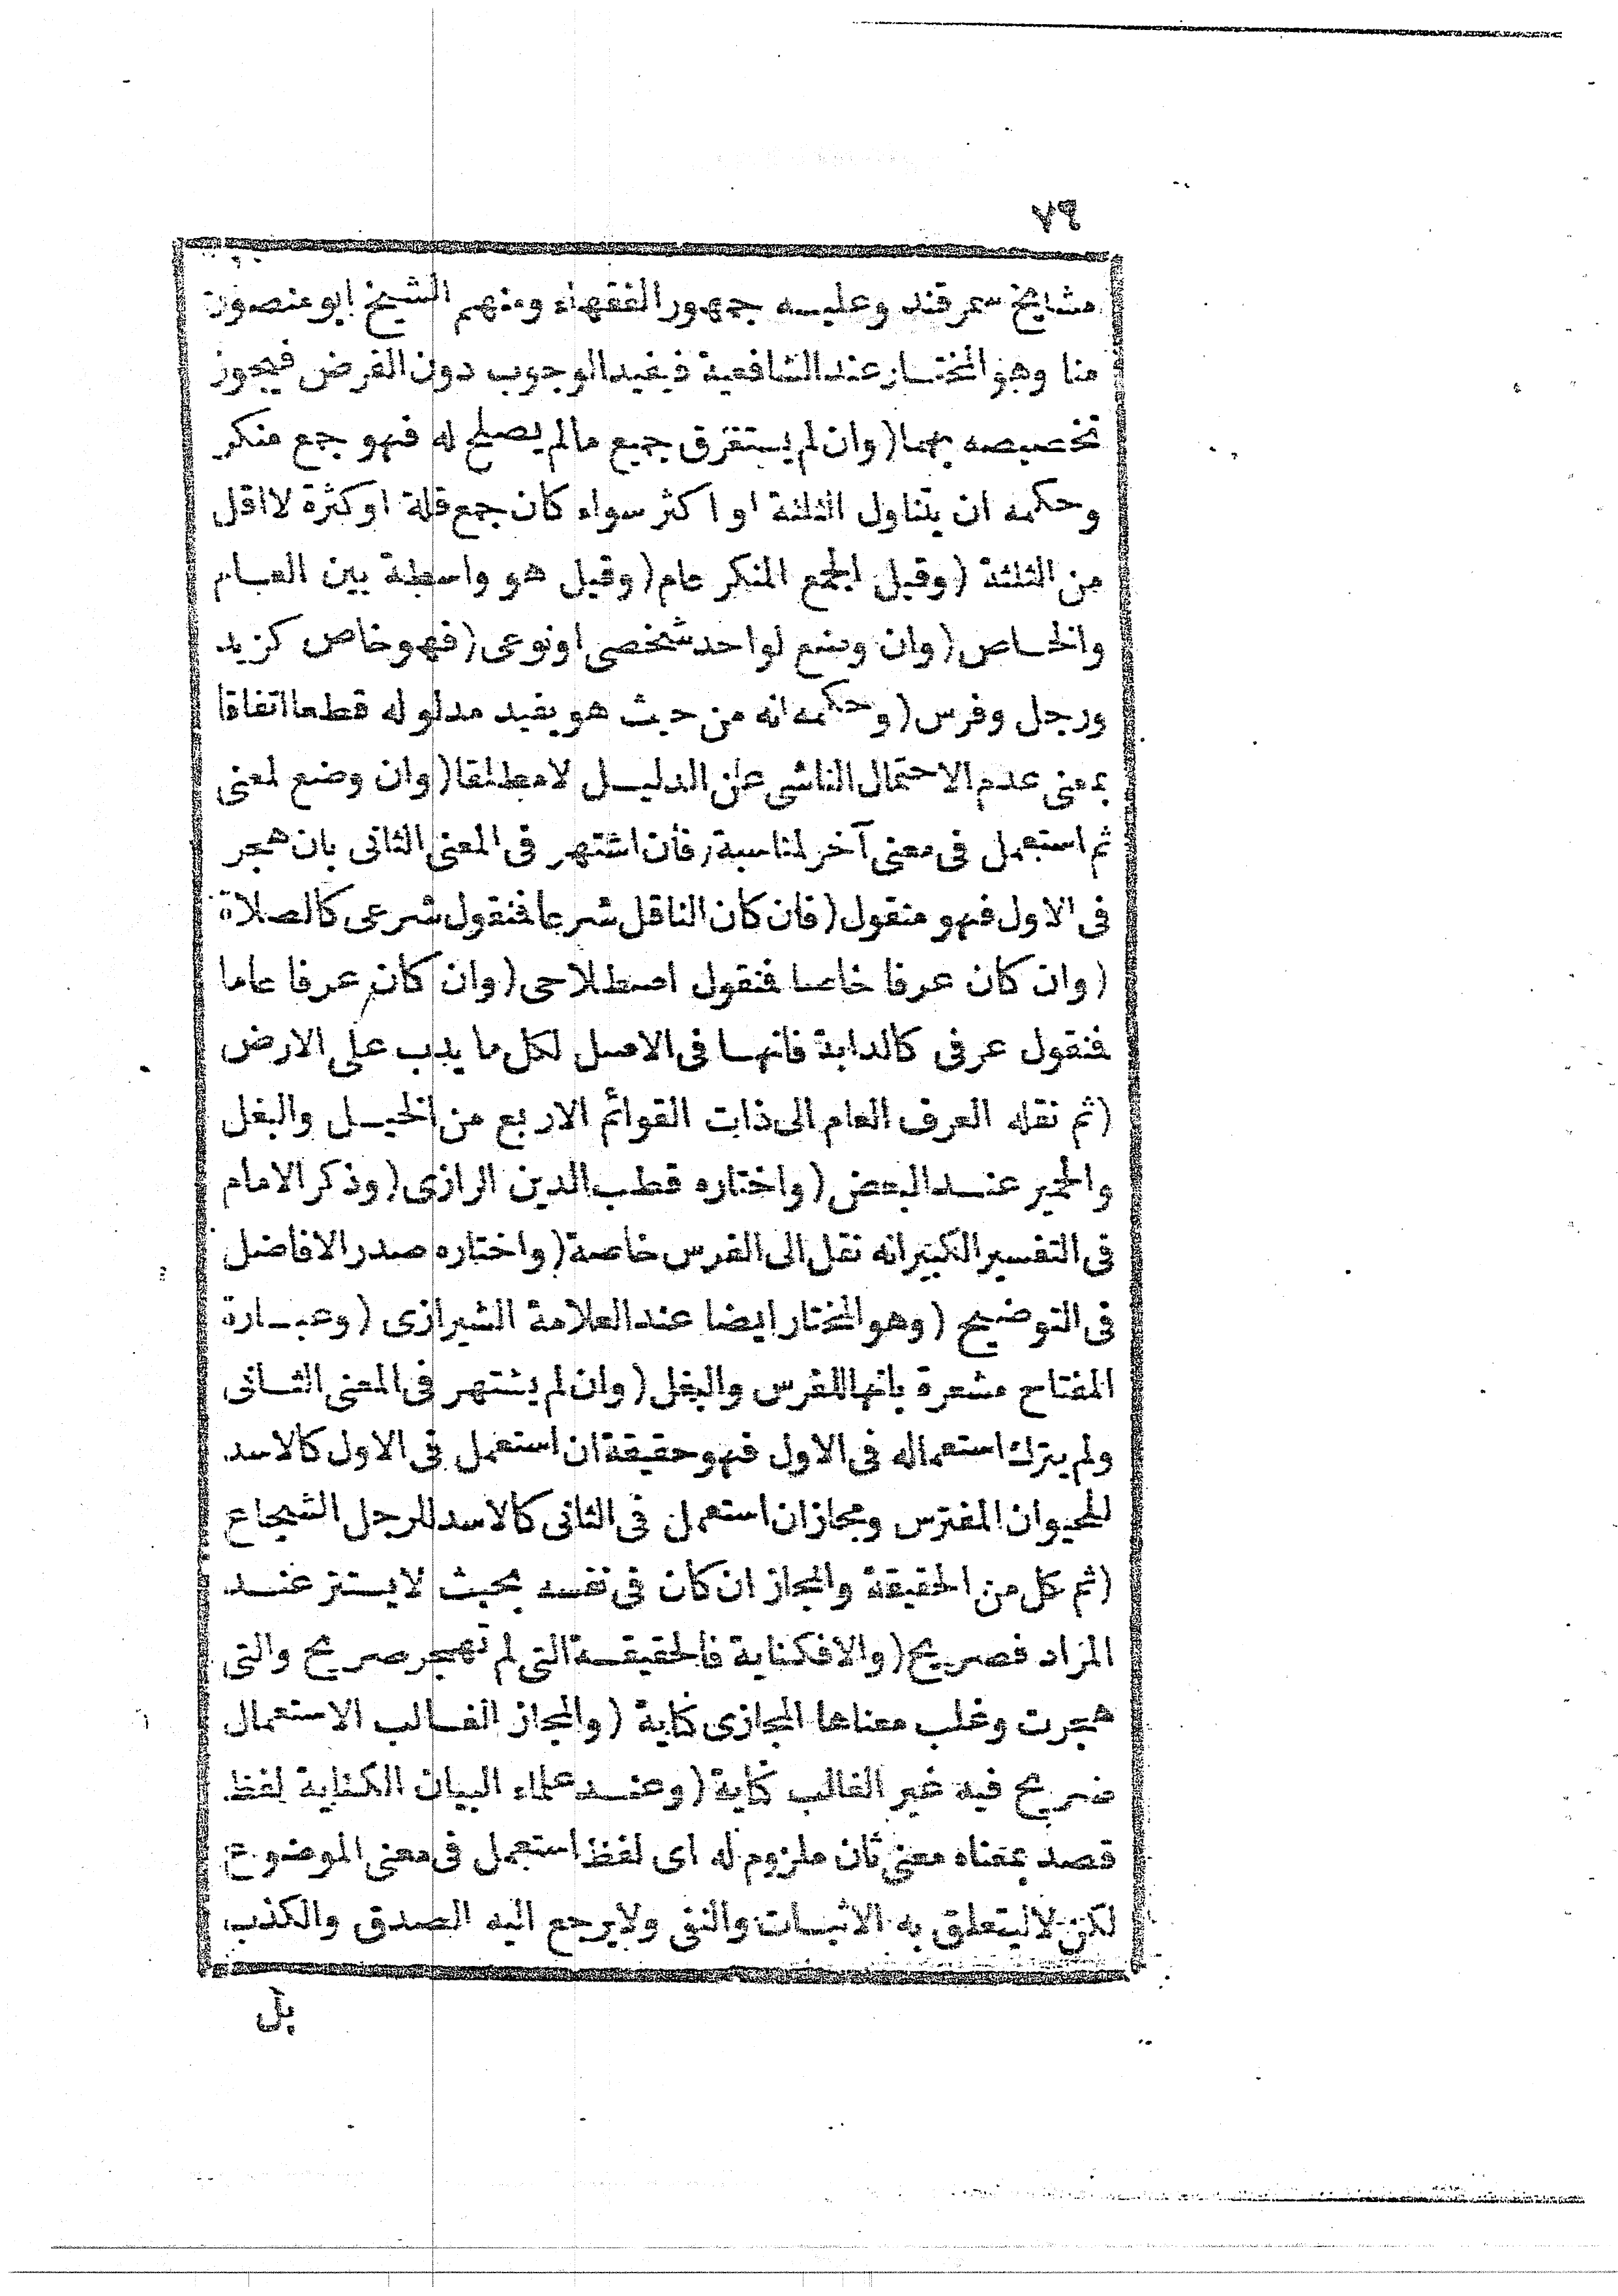 ٧٩
مشايخ سمرقند وعليه جمهور الفقهاء ومنهم الشيخ ابو منصور
منا وهو المختار عند الشافعية فيفيد الوجوب دون الفرض فيجوز
تخصيصه بهما (وان لم يستغرق جميع مالم يصلح له فهو جمع منكر
وحكمه ان يتناول الثلثة او اكثر سواء كان جمع قلة او كثرة لا اقل
من الثلثة (وقيل الجمع المنكر عام (وقيل هو واسطة بين العام
والخاص (وان وضع لواحد شخصى او نوعى (فهو خاص كزيد
ورجل وفرس (وحكمه انه من حيث هو يفيد مدلوله قطعا اتفاقا
بمعنى عدم الاحتمال الناشى عن الدليل لا مطلقا (وان وضع لمعنى
ثم استعمل فى معنى آخر لمناسبة فان اشتهر فى المعنى الثانى بان هجر
فى الاول فهو منقول (فان كان الناقل شرعا فنقول شرعى كالصلاة
(وان كان عرفا خاصا فنقول اصطلاحى (وان كان عرفا عاما
فنقول عرفى كالدابة فانها فى الاصل لكل ما يدب على الارض
(ثم نقله العرف العام الى ذات القوائم الاربع من الخيل والبغل
والحمير عند البعض (واختاره قطب الدين الرازى (وذكر الامام
فى التفسير الكبير انه نقل الى الفرس خاصة (واختاره صدر الافاضل
فى التوضيح (وهو المختار ايضا عند العلامة الشيرازى (وعبارة
المفتاح مشعرة بانها للفرس والبغل (وان لم يشتهر فى المعنى الثانى
ولم يترك استعماله فى الاول فهو حقيقة ان استعمل فى الاول كالاسد
للحيوان المفترس ومجاز ان استعمل فى الثانى كالاسد للرجل الشجاع
(ثم كل من الحقيقة والمجاز ان كان فى نفسه بحيث لا يستتر عند
المراد فصريح (والا فكناية فالحقيقة التى لم تهجر صريح والتى
هجرت وغلب معناها المجازى كناية (والمجاز الغالب الاستعمال
صريح فيه غير الغالب كناية (وعند علماء البيان الكناية لفظ
قصد بمعناه معنى ثان ملزوم له اى لفظ استعمل فى معنى الموضوع
لكن لا ليتعلق به الاثبات والنفى ولا يرجع اليه الصدق والكذب
بل